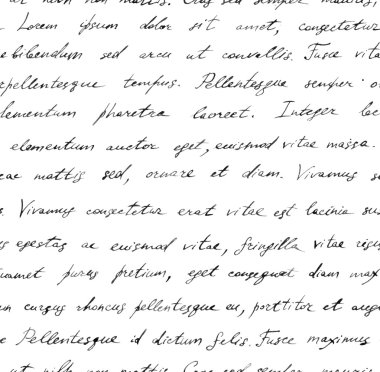 Lorem ipsum dolor sit amet, consectetur
bibendum sed arcu ut convallis. Fusce vita
pellentesque tempus. Pellentesque semper
lementum pharetra laoreet. Integer lac
elementum auctor eget, euismod vitae massa.
ac mattis sed, ornare et diam. Vivamus s
s. Vivamus consectetur erat vitae est lacinia sus
s egestas ac euismod vitae, fringilla vitae risus
amet purus pretium, eget consequat diam max
m cursus rhoncus pellentesque eu, porttitor et augue
e Pellentesque id dictum felis. Fusce maximus